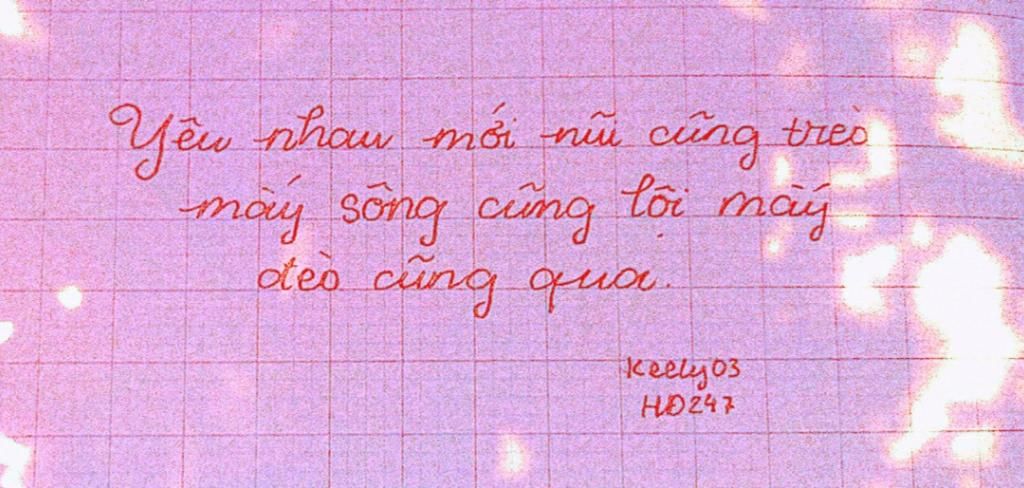 Yêu nhau mới núi cũng trèo
mấy sông cũng lội mấy
đèo cũng qua.
Keely03
HD247